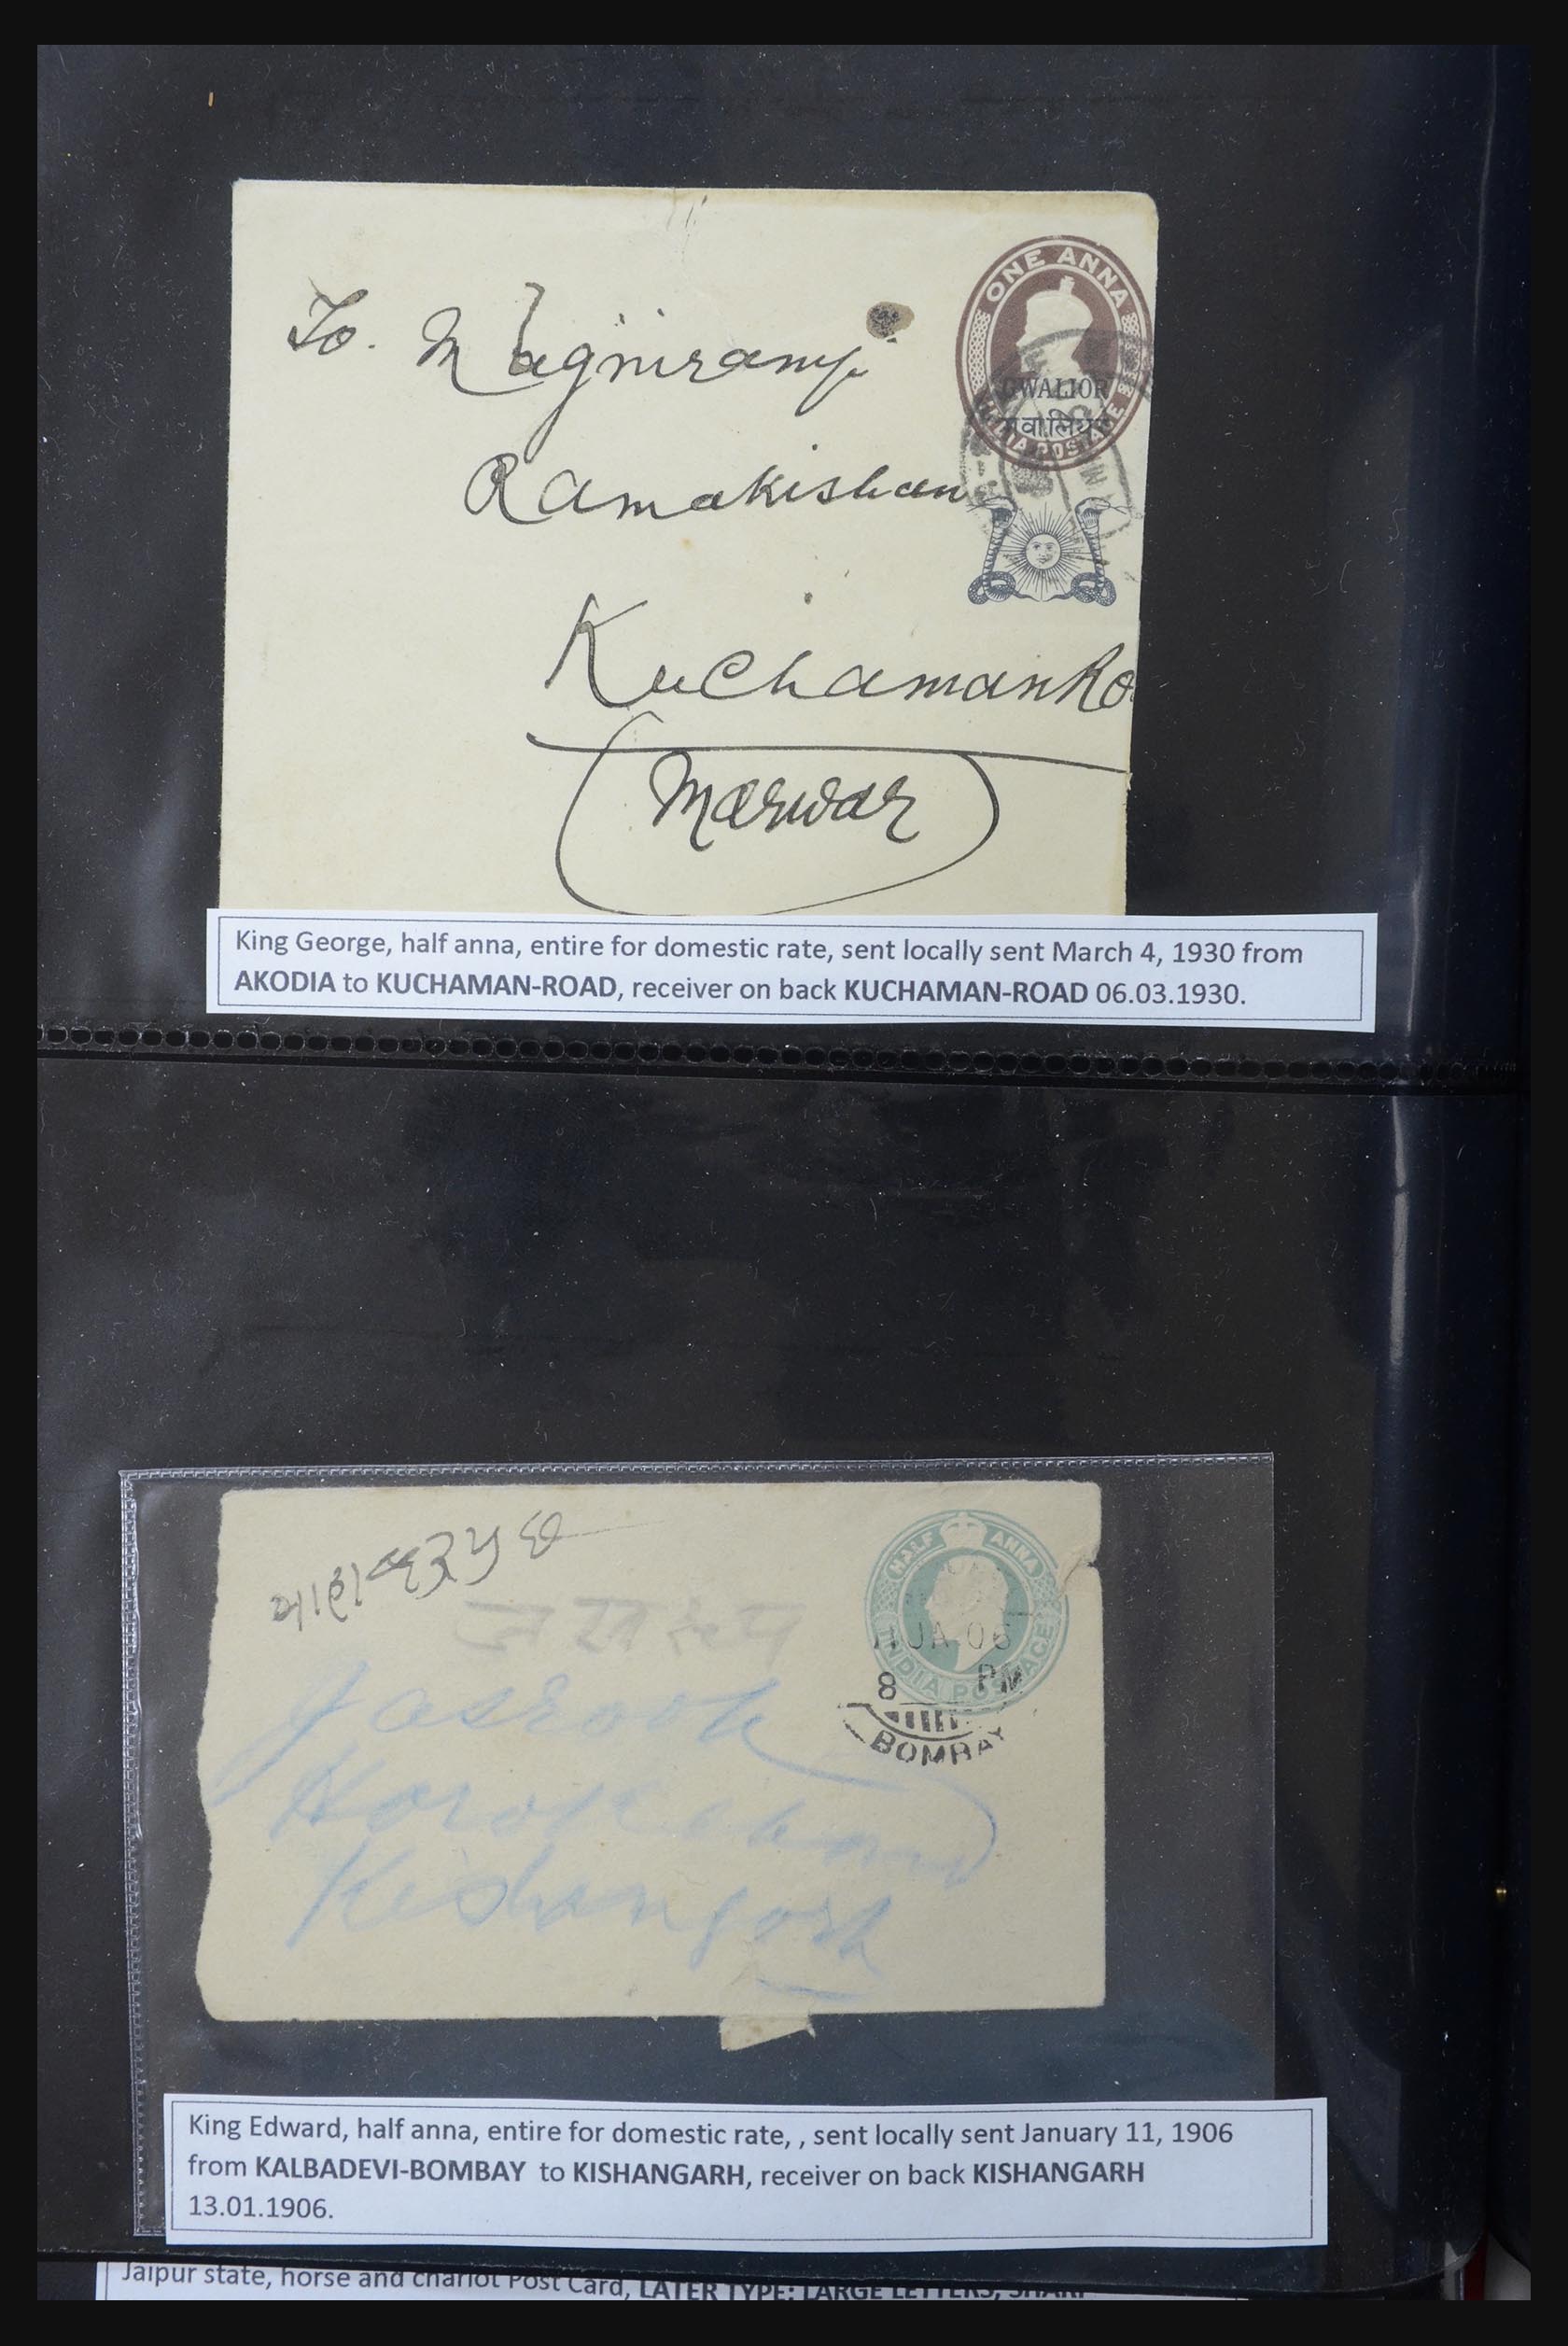 ONE ANNA
To. Magniramji
GWALIOR
ग्वालियर
INDIA POSTAGE
Ramakishan
KuchamanRo.
(Marwar)
King George, half anna, entire for domestic rate, sent locally sent March 4, 1930 from
AKODIA to KUCHAMAN-ROAD, receiver on back KUCHAMAN-ROAD 06.03.1930.
HALF ANNA
11 JA 06
8 PM
INDIA POSTAGE
BOMBAY
Kishangarh
King Edward, half anna, entire for domestic rate, , sent locally sent January 11, 1906
from KALBADEVI-BOMBAY to KISHANGARH, receiver on back KISHANGARH
13.01.1906.
Jaipur state, horse and chariot Post Card, LATER TYPE: LARGE LETTERS, SHARP